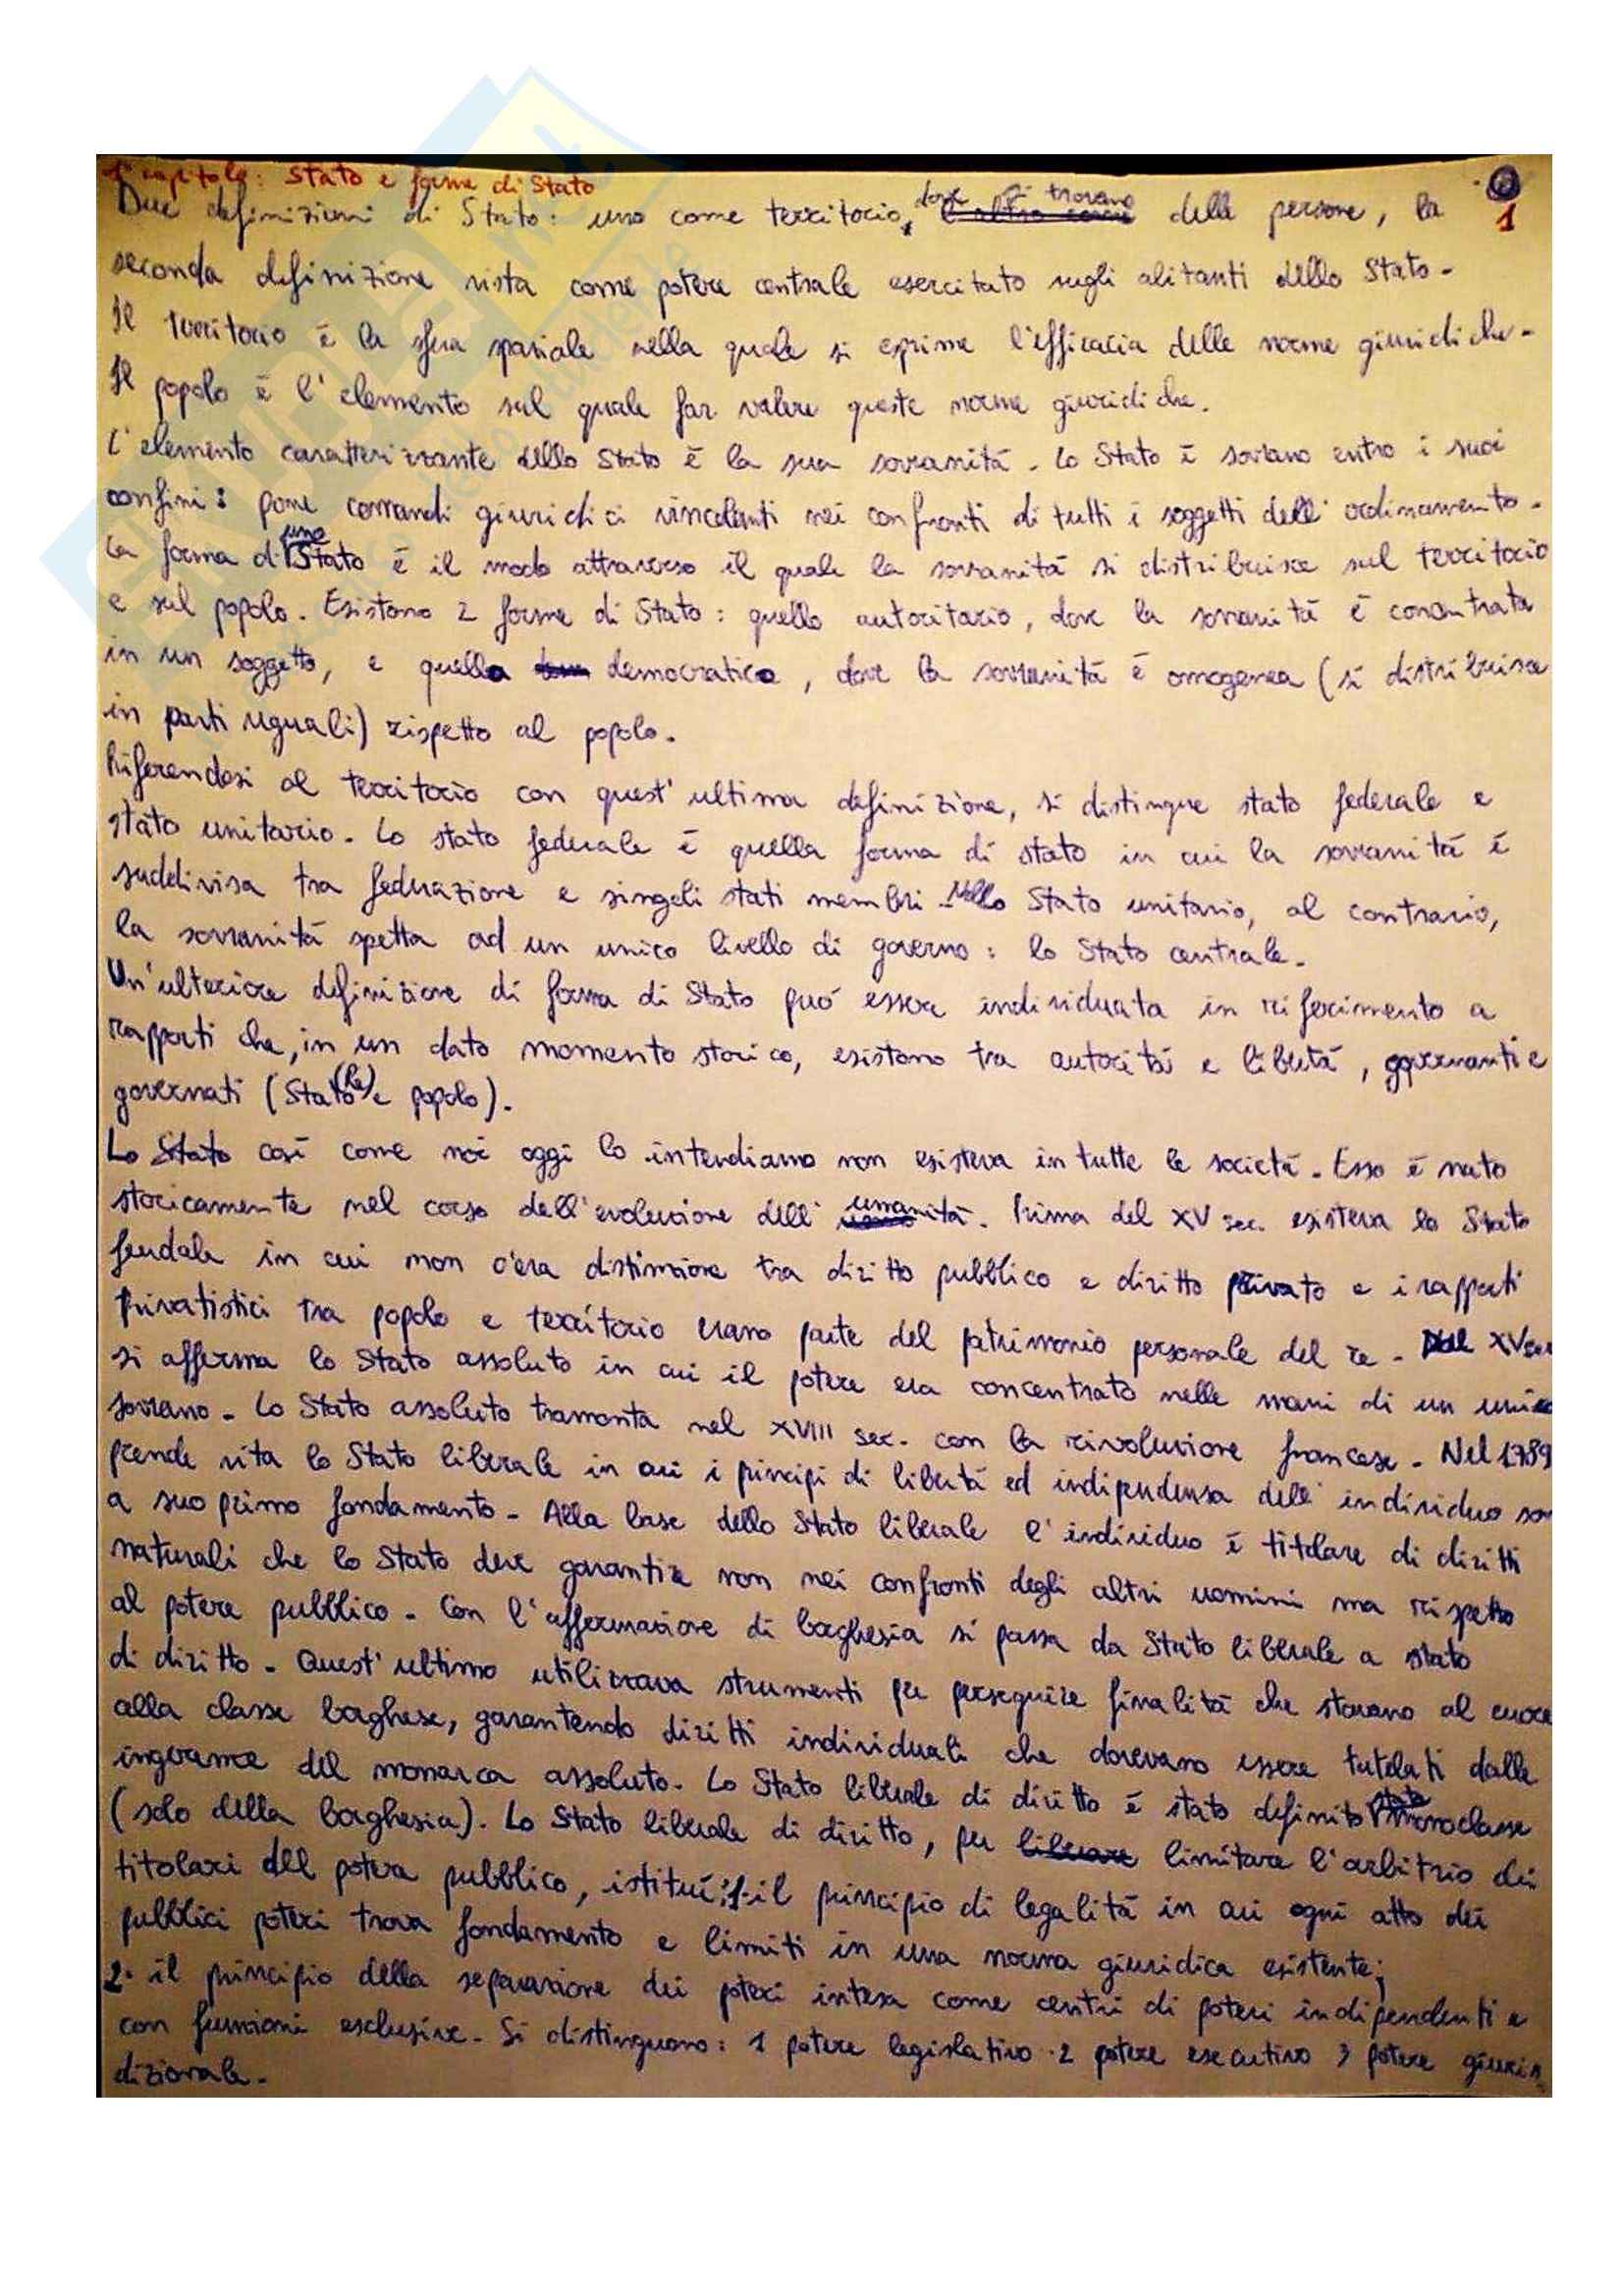 1° capitolo: Stato e forme di Stato
1
Due definizioni di Stato: uno come territorio, dove si trovano delle persone, la
seconda definizione vista come potere centrale esercitato sugli abitanti dello Stato.
Il territorio è la sfera spaziale nella quale si esprime l'efficacia delle norme giuridiche.
Il popolo è l'elemento sul quale far valere queste norme giuridiche.
L'elemento caratterizzante dello Stato è la sua sovranità. Lo Stato è sovrano entro i suoi
confini: pone comandi giuridici vincolanti nei confronti di tutti i soggetti dell'ordinamento.
La forma di uno Stato è il modo attraverso il quale la sovranità si distribuisce sul territorio
e sul popolo. Esistono 2 forme di Stato: quello autoritario, dove la sovranità è concentrata
in un soggetto, e quella democratica, dove la sovranità è omogenea (si distribuisce
in parti uguali) rispetto al popolo.
Riferendosi al territorio con quest'ultima definizione, si distingue stato federale e
stato unitario. Lo stato federale è quella forma di stato in cui la sovranità è
suddivisa tra federazione e singoli stati membri. Nello Stato unitario, al contrario,
la sovranità spetta ad un unico livello di governo: lo Stato centrale.
Un'ulteriore definizione di forma di Stato può essere individuata in riferimento a
rapporti che, in un dato momento storico, esistono tra autorità e libertà, governanti e
governati (Stato (Re) e popolo).
Lo Stato così come noi oggi lo intendiamo non esisteva in tutte le società. Esso è nato
storicamente nel corso dell'evoluzione dell'umanità. Prima del XV sec. esisteva lo Stato
feudale in cui non c'era distinzione tra diritto pubblico e diritto privato e i rapporti
privatistici tra popolo e territorio erano parte del patrimonio personale del re. Dal XV sec
si afferma lo Stato assoluto in cui il potere era concentrato nelle mani di un unico
sovrano. Lo Stato assoluto tramonta nel XVIII sec. con la rivoluzione francese. Nel 1789
prende vita lo Stato liberale in cui i principi di libertà ed indipendenza dell'individuo son
a suo primo fondamento. Alla base dello Stato liberale l'individuo è titolare di diritti
naturali che lo Stato deve garantire non nei confronti degli altri uomini ma rispetto
al potere pubblico. Con l'affermazione di borghesia si passa da Stato liberale a stato
di diritto. Quest'ultimo utilizzava strumenti per perseguire finalità che stavano al cuore
alla classe borghese, garantendo diritti individuali che dovevano essere tutelati dalle
ingerenze del monarca assoluto. Lo Stato liberale di diritto è stato definito stato monoclasse
(solo della borghesia). Lo Stato liberale di diritto, per limitare l'arbitrio dei
titolari del potere pubblico, istituì: 1. il principio di legalità in cui ogni atto dei
pubblici poteri trova fondamento e limiti in una norma giuridica esistente;
2. il principio della separazione dei poteri intesa come centri di poteri indipendenti e
con funzioni esclusive. Si distinguono: 1 potere legislativo 2 potere esecutivo 3 potere giuris
dizionale.